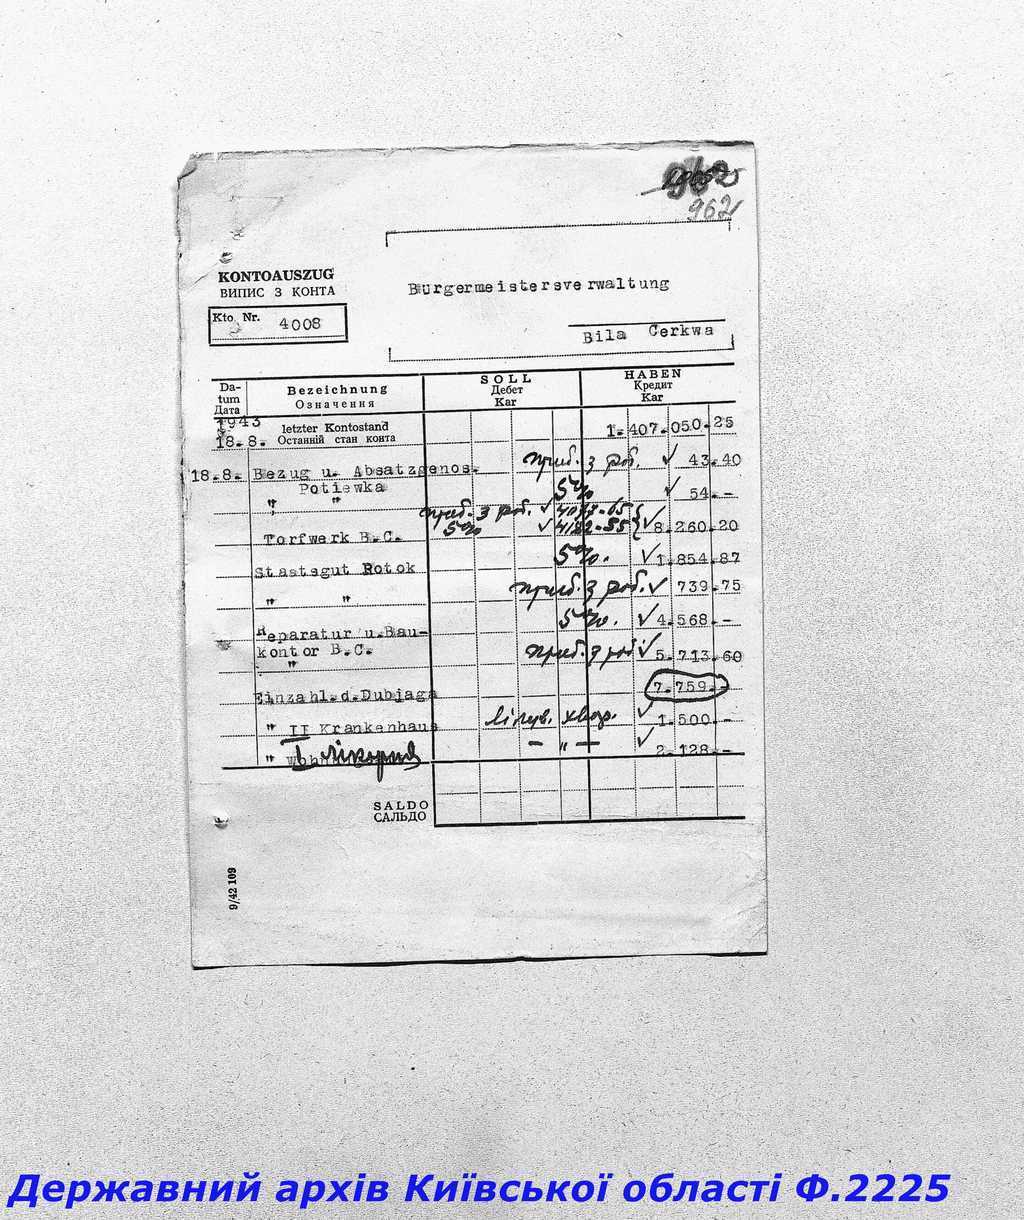 962
KONTOAUSZUG
ВИПИС З КОНТА
Kto. Nr. 4008
Burgermeistersverwaltung
Bila Cerkwa
Da-tum Дата
Bezeichnung Означення
SOLL Дебет Kar
HABEN Кредит Kar
1943
18.8. letzter Kontostand Останній стан конта 1.407.050.25
18.8. Bezug u. Absatzgenos. приб. з роб. ✓ 43.40
Potiewka 5% ✓ 54.-
" " приб. з роб. ✓ 4073-65
5% ✓ 4182-55 ✓ 8.260.20
Torfwerk B.C. 5%. ✓ 1.854.87
Staatsgut Rotok приб. з роб. ✓ 739.75
" " 5%. ✓ 4.568.-
Reparatur u.Bau-
kontor B.C. приб. з роб. ✓ 5.713.60
" 7.759.-
Einzahl.d.Dubjaga лікув. хвор. ✓ 1.500.-
" II Krankenhaus - " - ✓ 2.128.-
"
SALDO
САЛЬДО
9/42 109
Державний архів Київської області Ф.2225